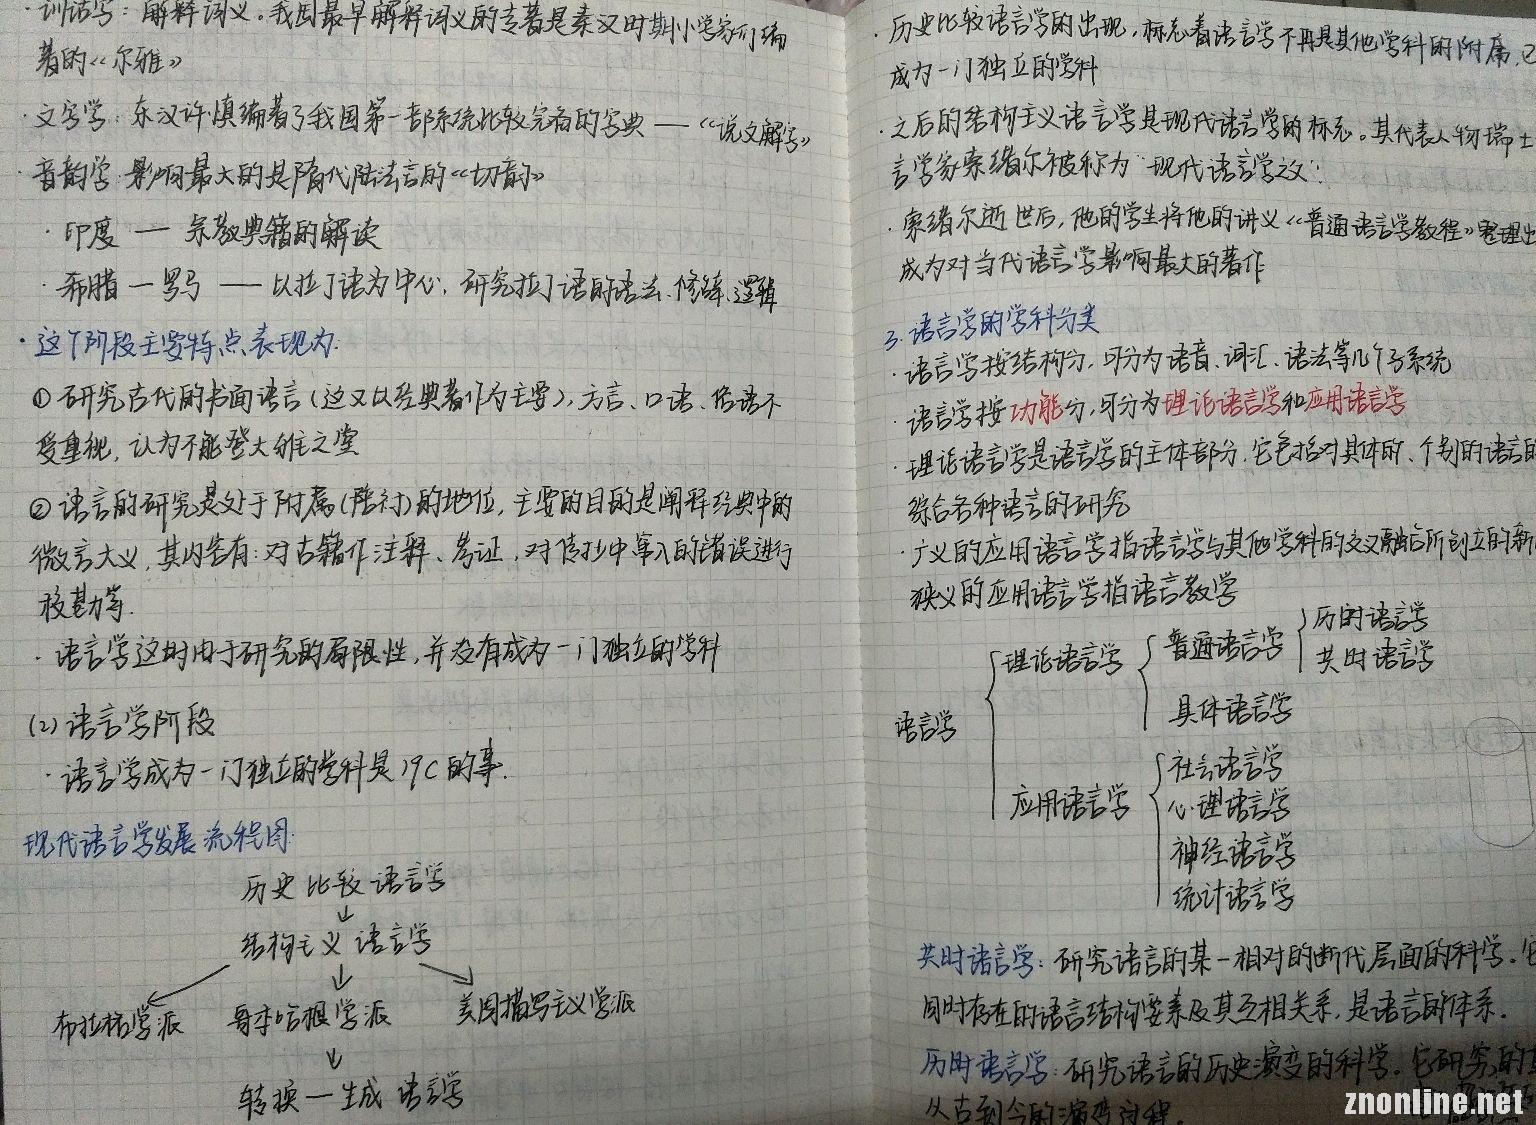 ·训诂学：解释词义。我国最早解释词义的专著是秦汉时期小学家们编
著的《尔雅》
·文字学：东汉许慎编著了我国第一部系统比较完备的字典——《说文解字》
·音韵学：影响最大的是隋代陆法言的《切韵》
·印度——宗教典籍的解读
·希腊—罗马——以拉丁语为中心，研究拉丁语的语法、修辞、逻辑
·这个阶段主要特点表现为：
①研究古代的书面语言（这又以经典著作为主要），方言、口语、俗语不
受重视，认为不能登大雅之堂
②语言的研究是处于附属（陪衬）的地位，主要的目的是阐释经典中的
微言大义，其内容有：对古籍作注释、考证，对传抄中窜入的错误进行
校勘等.
·语言学这时由于研究的局限性，并没有成为一门独立的学科
(2)语言学阶段
·语言学成为一门独立的学科是19C的事.
现代语言学发展流程图：
历史比较语言学
↓
结构主义语言学
布拉格学派 哥本哈根学派 美国描写主义学派
↓
转换—生成语言学
·历史比较语言学的出现，标志着语言学不再是其他学科的附庸，已
成为一门独立的学科
·之后的结构主义语言学是现代语言学的标志。其代表人物瑞士
言学家索绪尔被称为"现代语言学之父".
·索绪尔逝世后，他的学生将他的讲义《普通语言学教程》整理出
成为对当代语言学影响最大的著作
3.语言学的学科分类
·语言学按结构分，可分为语音、词汇、语法等几个子系统
语言学按功能分，可分为理论语言学和应用语言学
·理论语言学是语言学的主体部分，它包括对具体的、个别的语言的
综合各种语言的研究
·广义的应用语言学指语言学与其他学科的交叉融合所创立的新
狭义的应用语言学指语言教学
语言学
理论语言学
普通语言学
历时语言学
共时语言学
具体语言学
应用语言学
社会语言学
心理语言学
神经语言学
统计语言学
共时语言学：研究语言的某一相对的断代层面的科学。它
同时存在的语言结构要素及其互相关系，是语言的体系.
历时语言学：研究语言的历史演变的科学。它研究的
从古到今的演变过程.
znonline.net